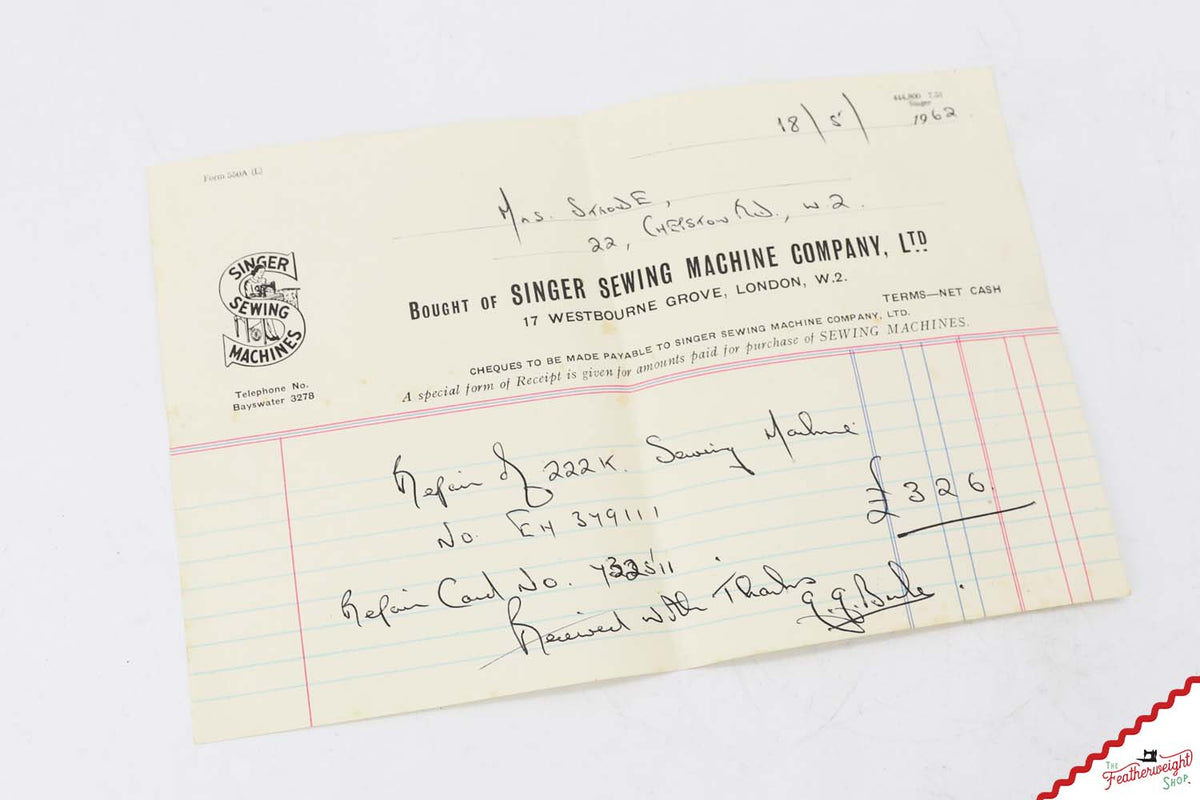 Form 550A (L)
Singer
18/5/ 1962
Mrs. Strode,
22, Chepstow Rd., W.2.
SINGER
SEWING
MACHINES
Telephone No.
Bayswater 3278
BOUGHT OF SINGER SEWING MACHINE COMPANY, LTD
17 WESTBOURNE GROVE, LONDON, W.2.
TERMS—NET CASH
CHEQUES TO BE MADE PAYABLE TO SINGER SEWING MACHINE COMPANY, LTD.
A special form of Receipt is given for amounts paid for purchase of SEWING MACHINES.
Repair of 222K. Sewing Machine
No. EH 379111
£ 3 2 6.
Repair Card No.
Received with Thanks
THE
Featherweight
SHOP.